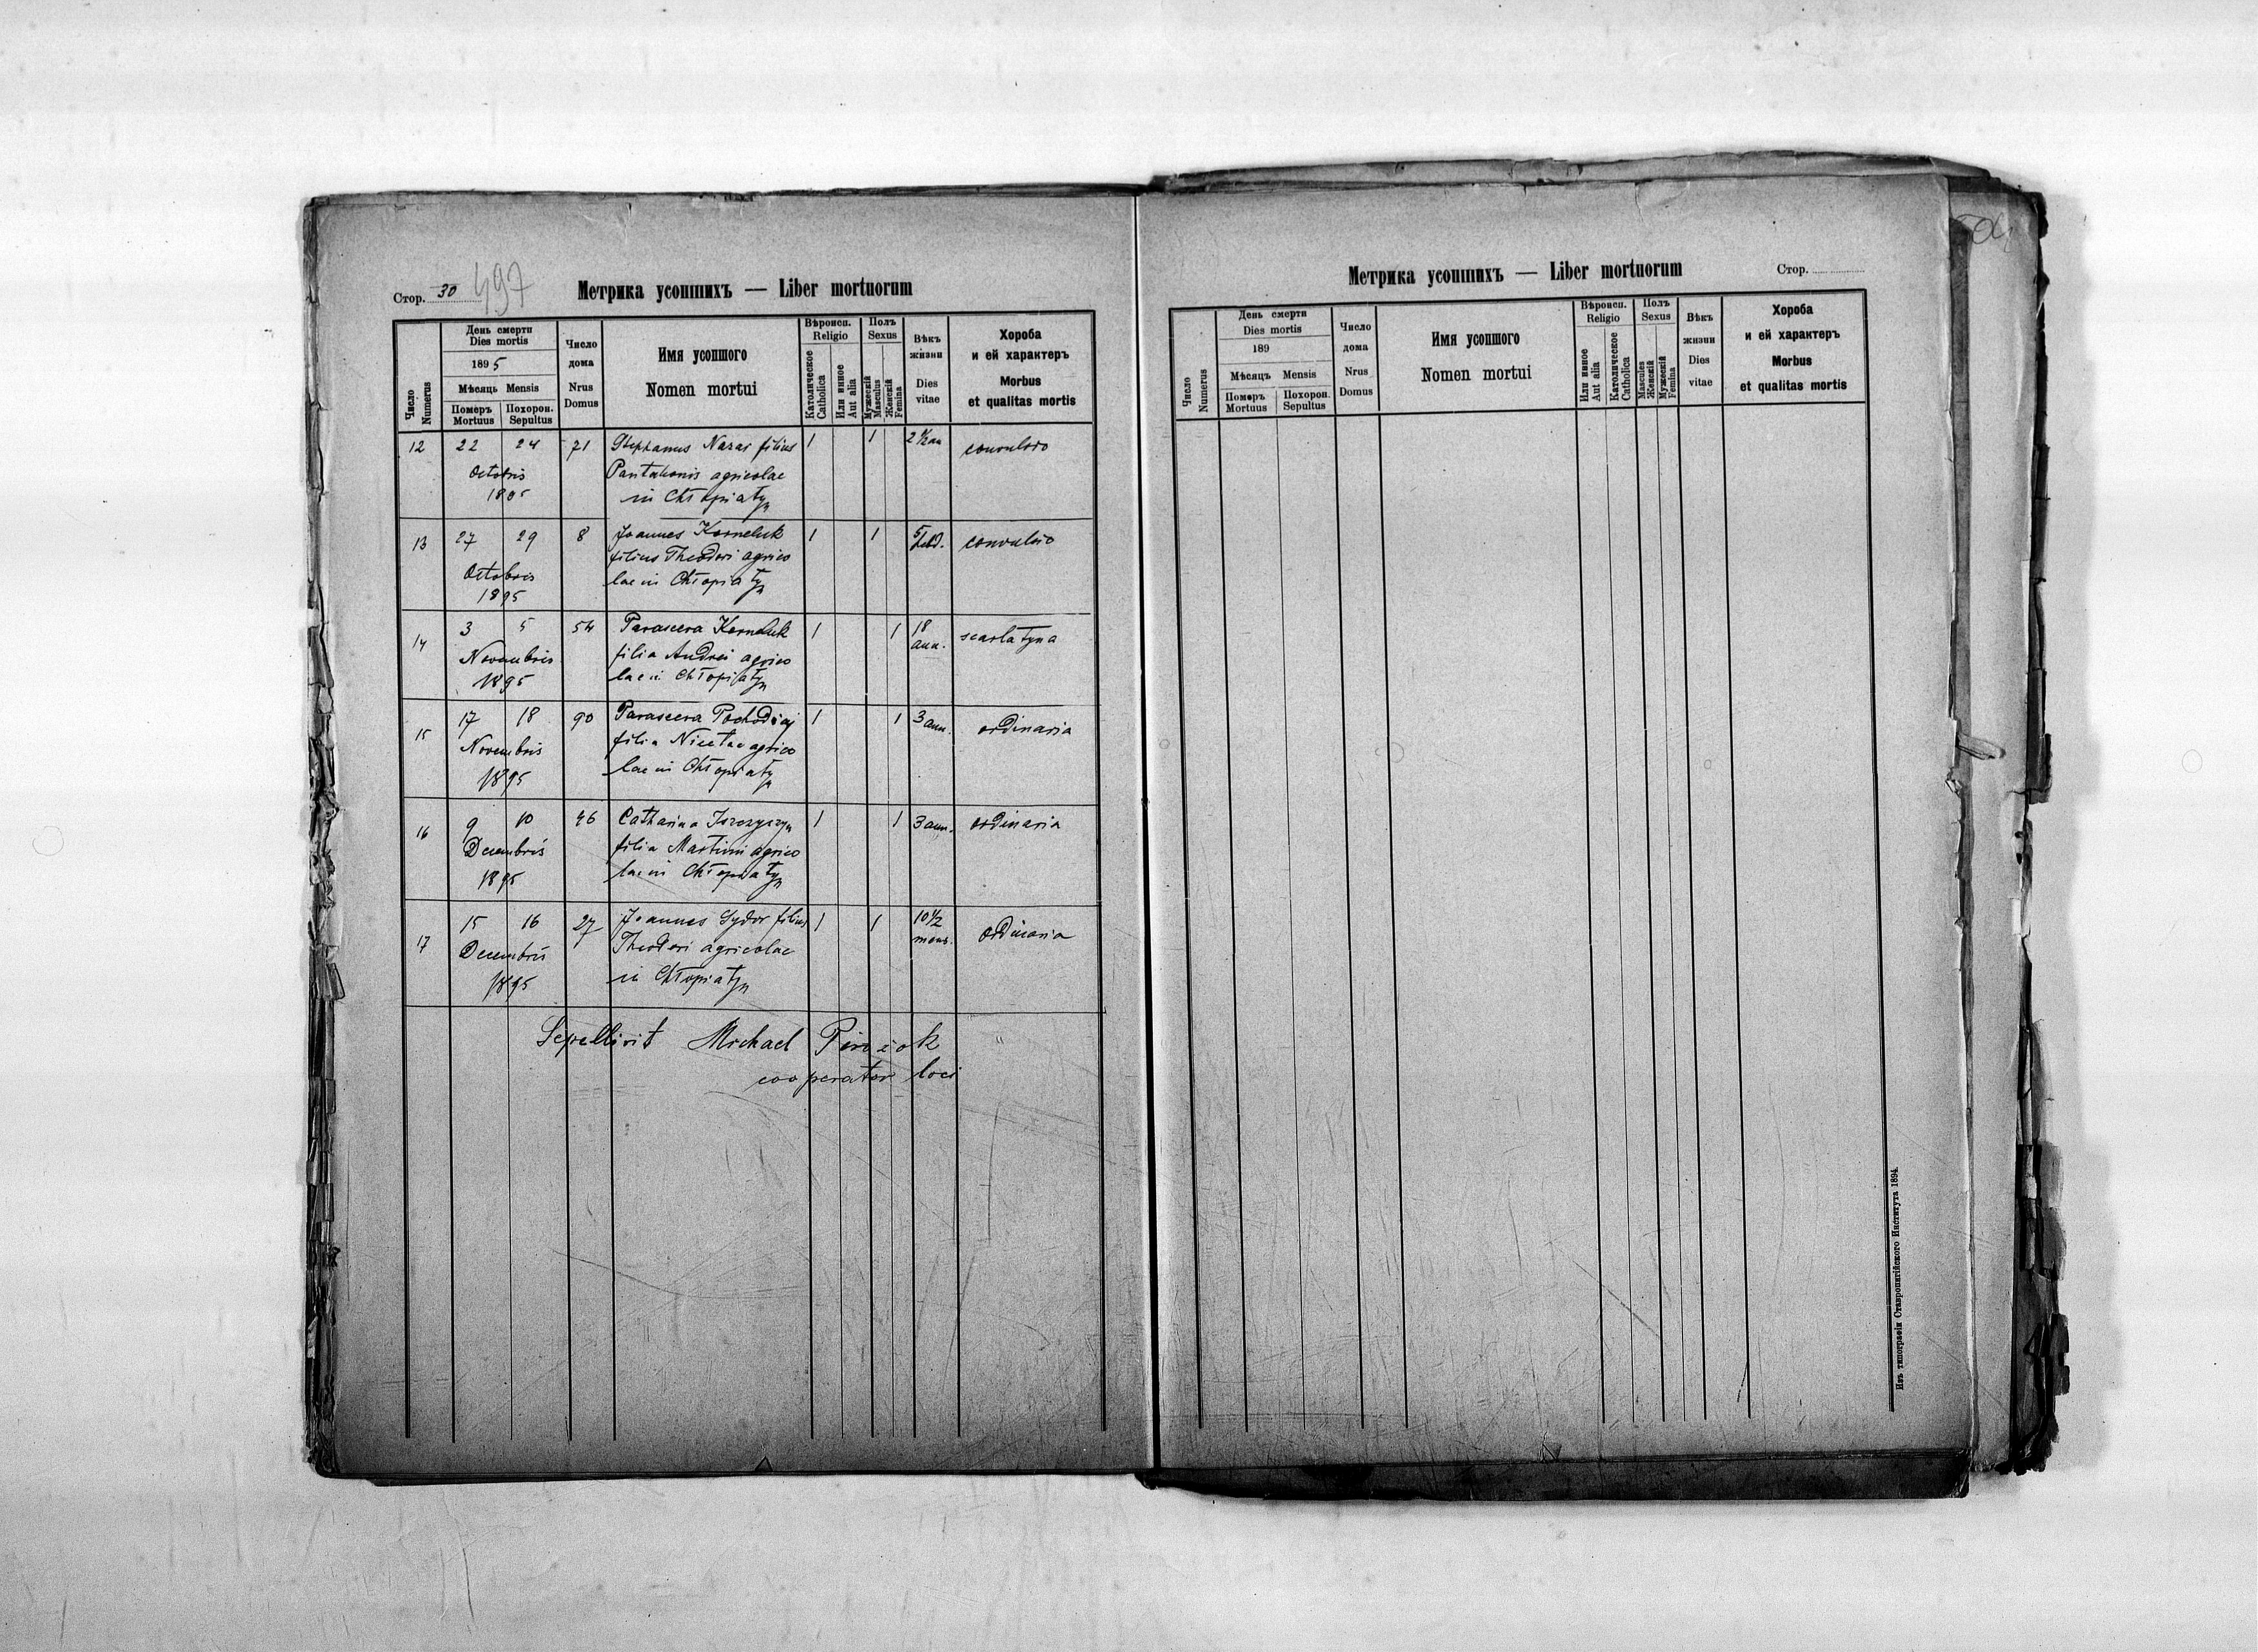 Стор. 30 497
Метрика усопшихъ — Liber mortuorum
Число Numerus
День смерти
Dies mortis
1895
Мѣсяць Mensis
Померъ Mortuus
Похорон. Sepultus
Число дома
Nrus Domus
Имя усопшого
Nomen mortui
Вѣроисп.
Religio
Католическое Catholica
Или иное Aut alia
Полъ
Sexus
Мужескій Masculus
Женскій Femina
Вѣкъ жизни
Dies vitae
Хороба
и ей характеръ
Morbus
et qualitas mortis
12 22 24 71 Stephanus Nazar filius 1 1 2 1/2 an convulsio
Octobris Pantaleonis agricolae
1895 in Chłopiatyn
13 27 29 8 Joannes Korneluk 1 1 5 hebd. convulsio
Octobris filius Theodori agrico
1895 lae in Chłopiatyn
14 3 5 54 Parasceva Korneluk 1 1 18 ann. scarlatyna
Novembris filia Andrei agrico
1895 lae in Chłopiatyn
15 17 18 90 Parasceva 1 1 3 ann. ordinaria
Novembris filia Nicetae agrico
1895 lae in Chłopiatyn
16 9 10 46 Catharina 1 1 3 ann. ordinaria
Decembris filia Martini agrico
1895 lae in Chłopiatyn
17 15 16 27 Joannes Sydor filius 1 1 10 1/2 mens. ordinaria
Decembris Theodori agricolae
1895 in Chłopiatyn
Sepellivit Michael
cooperator loci
Метрика усопшихъ — Liber mortuorum
Стор.
Число Numerus
День смерти
Dies mortis
189
Мѣсяцъ Mensis
Померъ Mortuus
Похорон. Sepultus
Число дома
Nrus Domus
Имя усопшого
Nomen mortui
Вѣроисп.
Religio
Или иное Aut alia
Католическое Catholica
Полъ
Sexus
Masculus
Женскій
Мужескій
Femina
Вѣкъ жизни
Dies vitae
Хороба
и ей характеръ
Morbus
et qualitas mortis
Изъ типографіи Ставропигійского Института 1894.